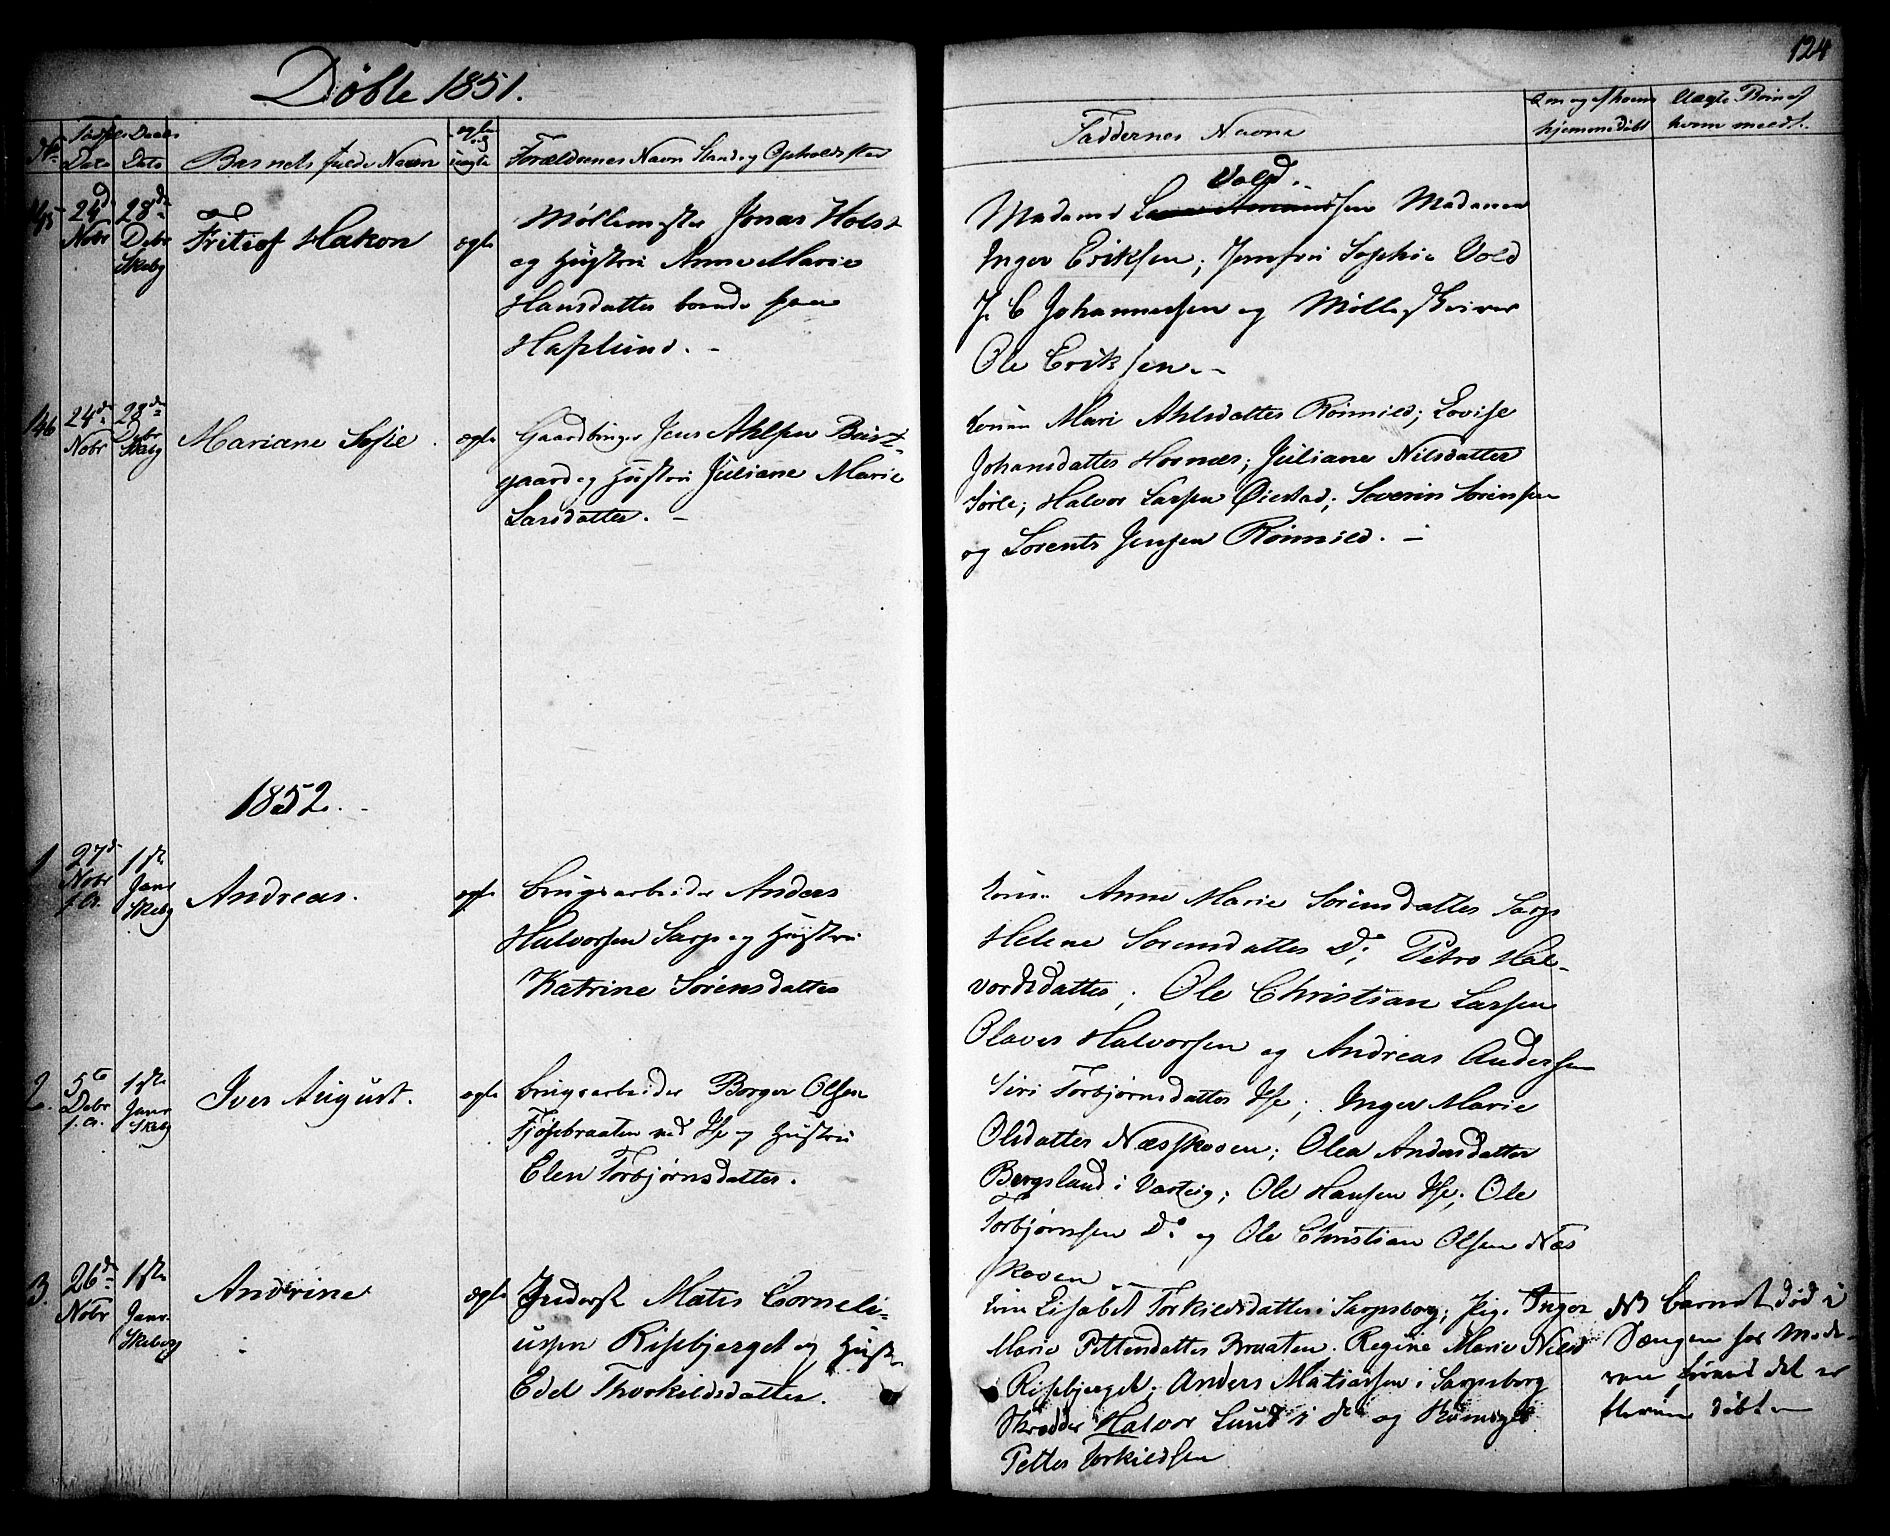 124
Døbte 1851.
No Fødsels Dato Daabs Dato Barnets fulde Navn ægte og uægte Forældrenes Navn Stand og Opholdsted
Faddernes Navne
hjemmedøbt
Uægte Børn af
hvem meldt.
145 24d Nobr 28de Debr Skeby
Fritiof Hakon
ægte
Møllemester Jonas Holst
og Hustrue Anne Marie
Hansdatter boende paa
Haslund. -
Vold.
Madame Madame
Inger Eriksen; Jomfru Sophie Vold
J. C Johannessen og Mølleskriver
Ole Eriksen. -
146 24de Nobr 28de Debr Skeby
Mariane Sofie.
ægte
Gaardbruger Jens Ahlsen Buist-
gaard og Hustru Juliane Marie
Larsdatter. -
konen Mari Ahlsdatter Rømnild; Lovise
Johansdatter Hornæs; Juliane Nilsdatter
Sørle; Halvor Larsen Øiestad; Severin Sørensen
og Lorents Jensen Rømnild. -
1852. -
1 27de Nobr f. A. 1ste Janr Skeby
Andreas.
ægte
brugsarbeider Anders
Halvorsen Sarp og Hustru
Katrine Sørensdatter
konen Anne Marie Sørensdatter Sarp
Helene Sørensdatter Do; Petra Hal-
vordsdatter; Ole Christian Larsen
Olaves Halvorsen og Andreas Andersen
2. 5te Debr f. A. 1ste Janr Skeby
Iver August.
ægte
brugsarbeider Borger Olsen
Fjøsebraaten ved Ise og Hustru
Elen Torbjørnsdatter.
Siri Torbjørnsdatter Ise; Inger Marie
Olsdatter Næsskoven; Olea Andersdatter
Bergsland i Varteig; Ole Hansen Ise; Ole
Torbjørnsen Do. og Ole Christian Olsen Næs
skoven
3. 26de Nobr 1ste Janr. Skeberg
Andrine
ægte
Inderst Matis Corneli-
ussen Risebjerget og Hustr.
Edel Thorkildsdatter.
kone Lisabet Torkildsdatter i Sarpsborg; Pig. Inger
Marie Pettersdatter Braaten. Regine Marie Nilsd
Risebjerget; Anders Matiassen i Sarpsborg
Skrædder Halvor Lund i do og
Petter Torkildsen
NB barnet død i
Sængen hos Mode-
ren, førend det er
døbt